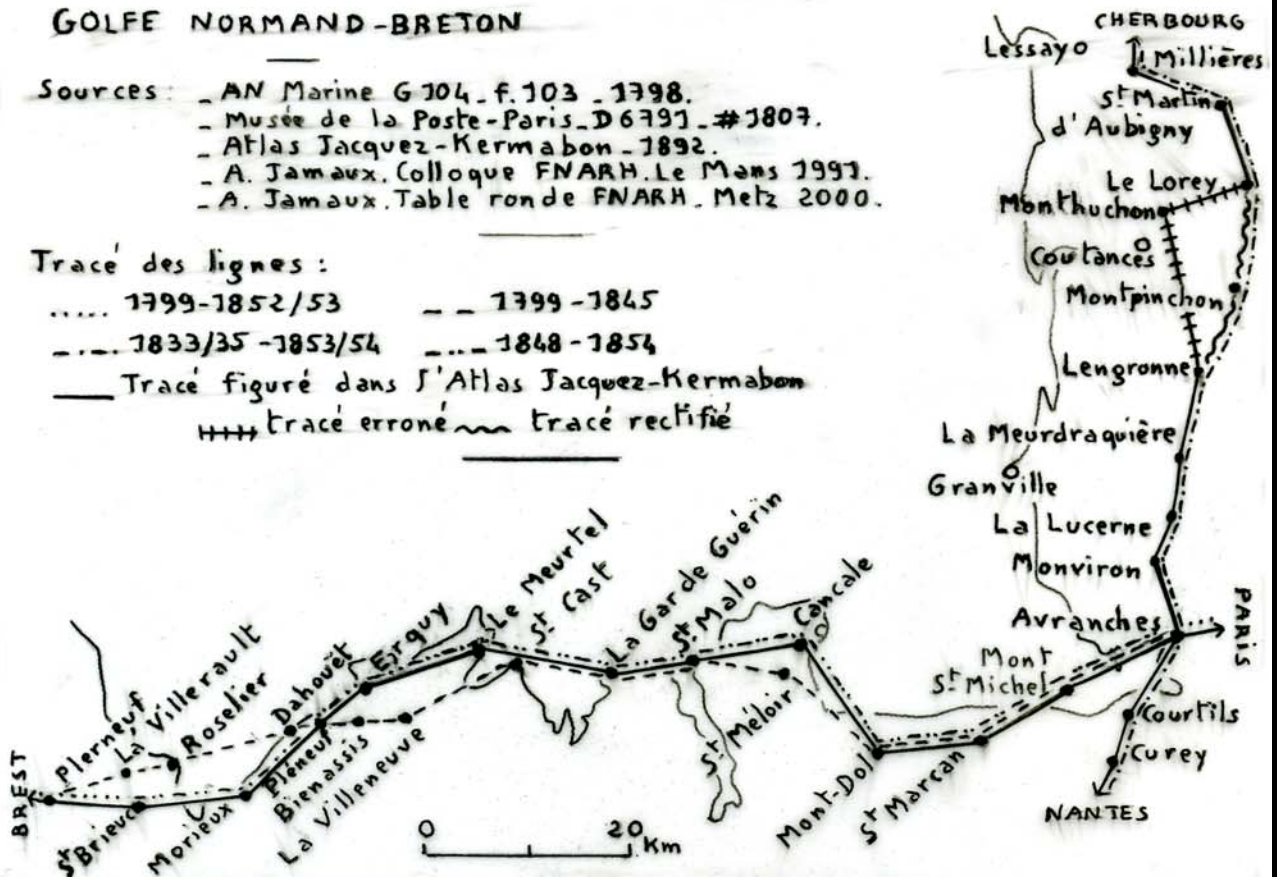 GOLFE NORMAND-BRETON
Sources: - AN Marine G 104. f. 103 - 1798.
- Musée de la Poste-Paris. D 6791 - #1807.
- Atlas Jacquez-Kermabon - 1892.
- A. Jamaux. Colloque FNARH. Le Mans 1991.
- A. Jamaux. Table ronde FNARH. Metz 2000.
Tracé des lignes :
1799-1852/53
1799-1845
1833/35-1853/54
1848-1854
Tracé figuré dans l'Atlas Jacquez-Kermabon
tracé erroné
tracé rectifié
CHERBOURG
Lessay
Millières
St Martin
d'Aubigny
Le Lorey
Monthuchon
Coutances
Montpinchon
Lengronne
La Meurdraquière
Granville
La Lucerne
Monviron
Avranches
PARIS
Mont
St Michel
Courtils
Curey
NANTES
BREST
Plerneuf
La Villerault
Roselier
Dahouët
Erquy
Le Meurtel
St Cast
La Garde Guérin
St Malo
Cancale
St Brieuc
Morieux
Pléneuf
Bienassis
La Villeneuve
St Méloir
Mont-Dol
St Marcan
0 20 Km